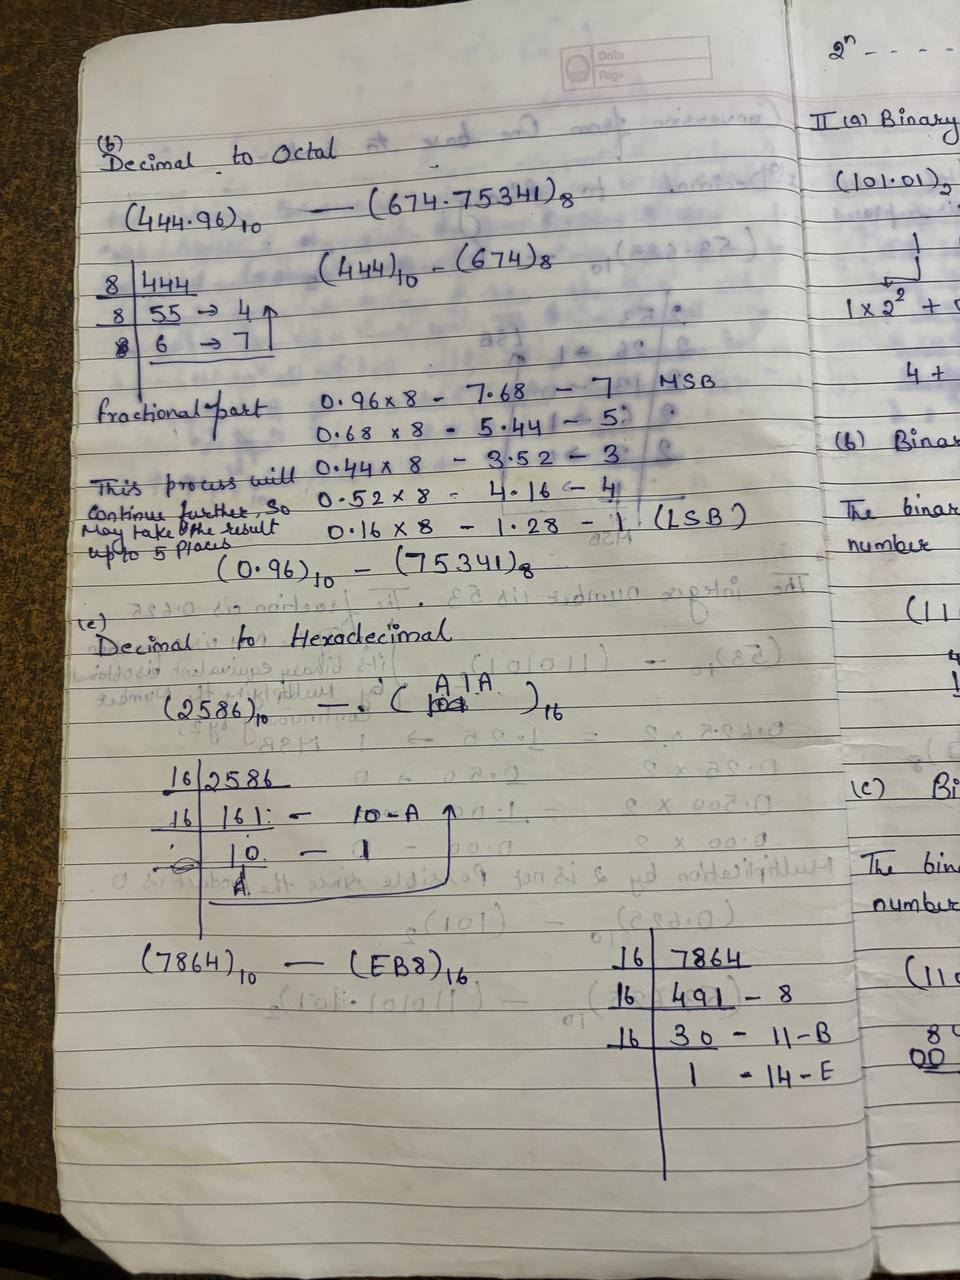 Date
Page
(b)
Decimal to Octal
(444.96)10 — (674.75341)8
8 | 444 (444)10 - (674)8
8 | 55 → 4
8 | 6 → 7
fractional part 0.96 x 8 - 7.68 - 7 MSB
0.68 x 8 - 5.44 - 5
0.44 x 8 - 3.52 - 3
This process will 0.52 x 8 - 4.16 - 4
continue further, So 0.16 x 8 - 1.28 - 1 (LSB)
may take the result
up to 5 places
(0.96)10 - (75341)8
(c)
Decimal to Hexadecimal
(2586)10 — (A1A)16
16 | 2586
16 | 161 - 10-A
10 - 1
A
(7864)10 — (EB8)16
16 | 7864
16 | 491 - 8
16 | 30 - 11-B
1 - 14-E
2ⁿ - - - -
II (a) Binary
(101.01)2
1
1 x 2² +
4 +
(b) Binar
The binar
number
(11
4
1
(c) Bi
The bin
number
(110
8
00